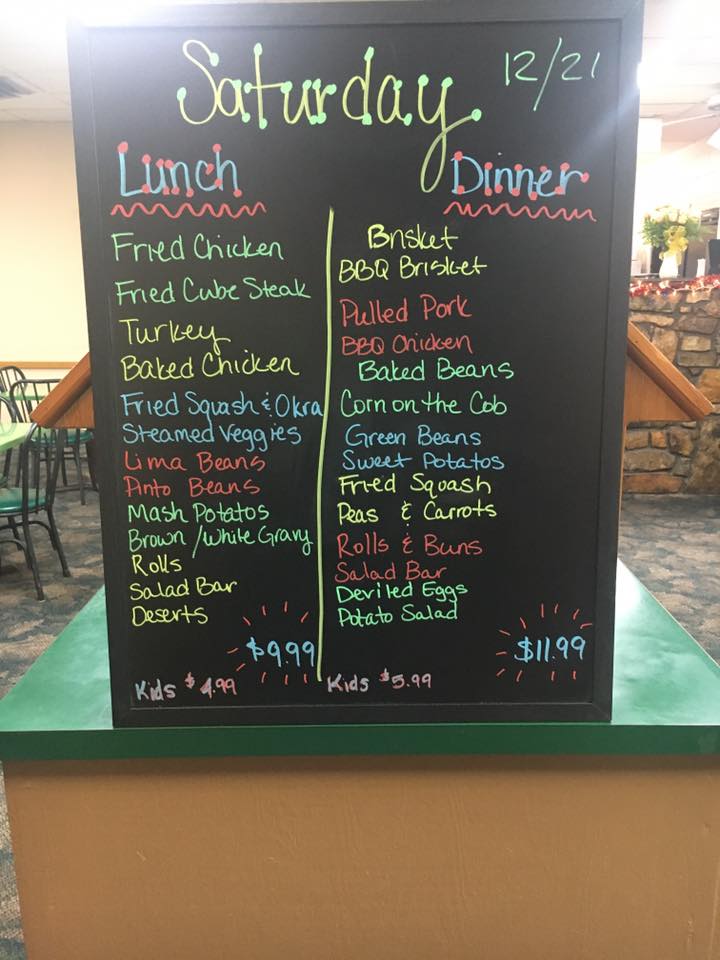 Saturday
12/21
Lunch
Fried Chicken
Fried Cube Steak
Turkey
Baked Chicken
Fried Squash & Okra
Steamed Veggies
Lima Beans
Pinto Beans
Mash Potatos
Brown/White Gravy
Rolls
Salad Bar
Deserts
$9.99
Kids $4.99
Dinner
Brisket
BBQ Brisket
Pulled Pork
BBQ Chicken
Baked Beans
Corn on the Cob
Green Beans
Sweet Potatos
Fried Squash
Peas & Carrots
Rolls & Buns
Salad Bar
Deviled Eggs
Potato Salad
$11.99
Kids $5.99